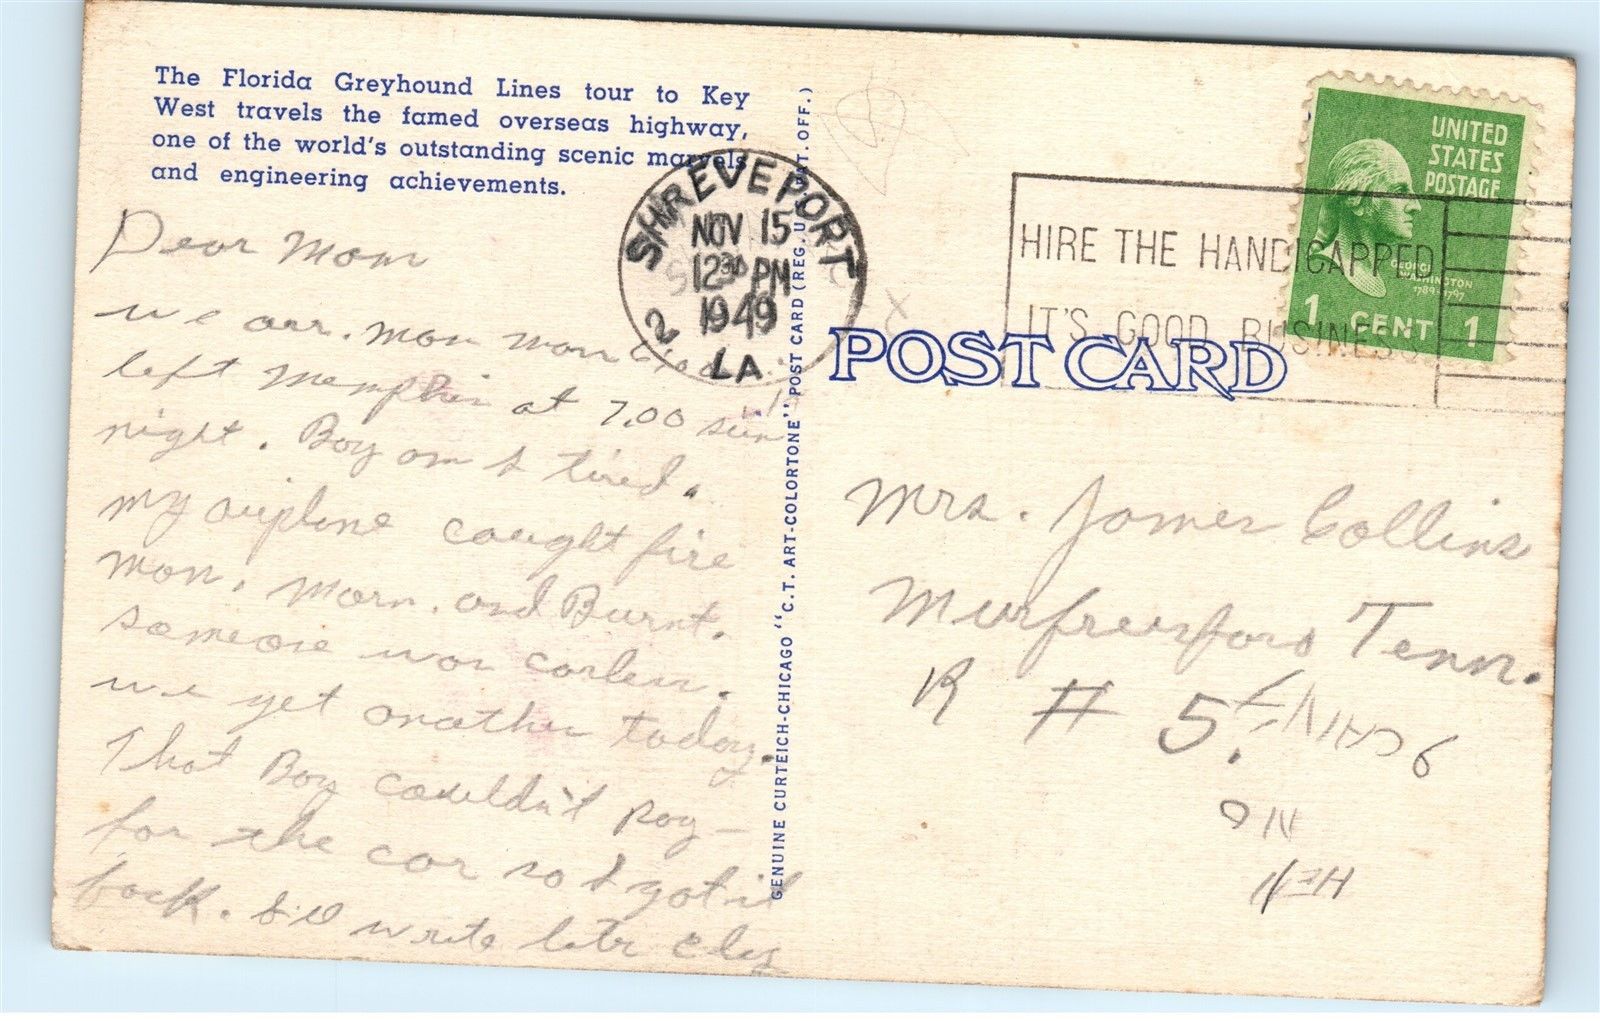 The Florida Greyhound Lines tour to Key
West travels the famed overseas highway,
one of the world's outstanding scenic marvels
and engineering achievements.
Dear Mom
we arr. Mon morn
left Memphis at 7.00 sun
night. Boy am I tired.
my airplane caught fire
mon. morn. and Burnt.
someone was carless.
we get another today.
That Boy couldn't pay
for the car so I got it
back. I'll write latr
SHREVEPORT
NOV 15
12 30 PM
1949
2 LA.
GENUINE CURTEICH-CHICAGO "C.T. ART-COLORTONE" POST CARD (REG. U.S. PAT. OFF.)
HIRE THE HANDICAPPED
IT'S GOOD BUSINESS
UNITED
STATES
POSTAGE
GEORGE
WASHINGTON
1789-1797
1 CENT 1
POST CARD
Mrs. James Collins
Murfreesboro Tenn.
R # 5.